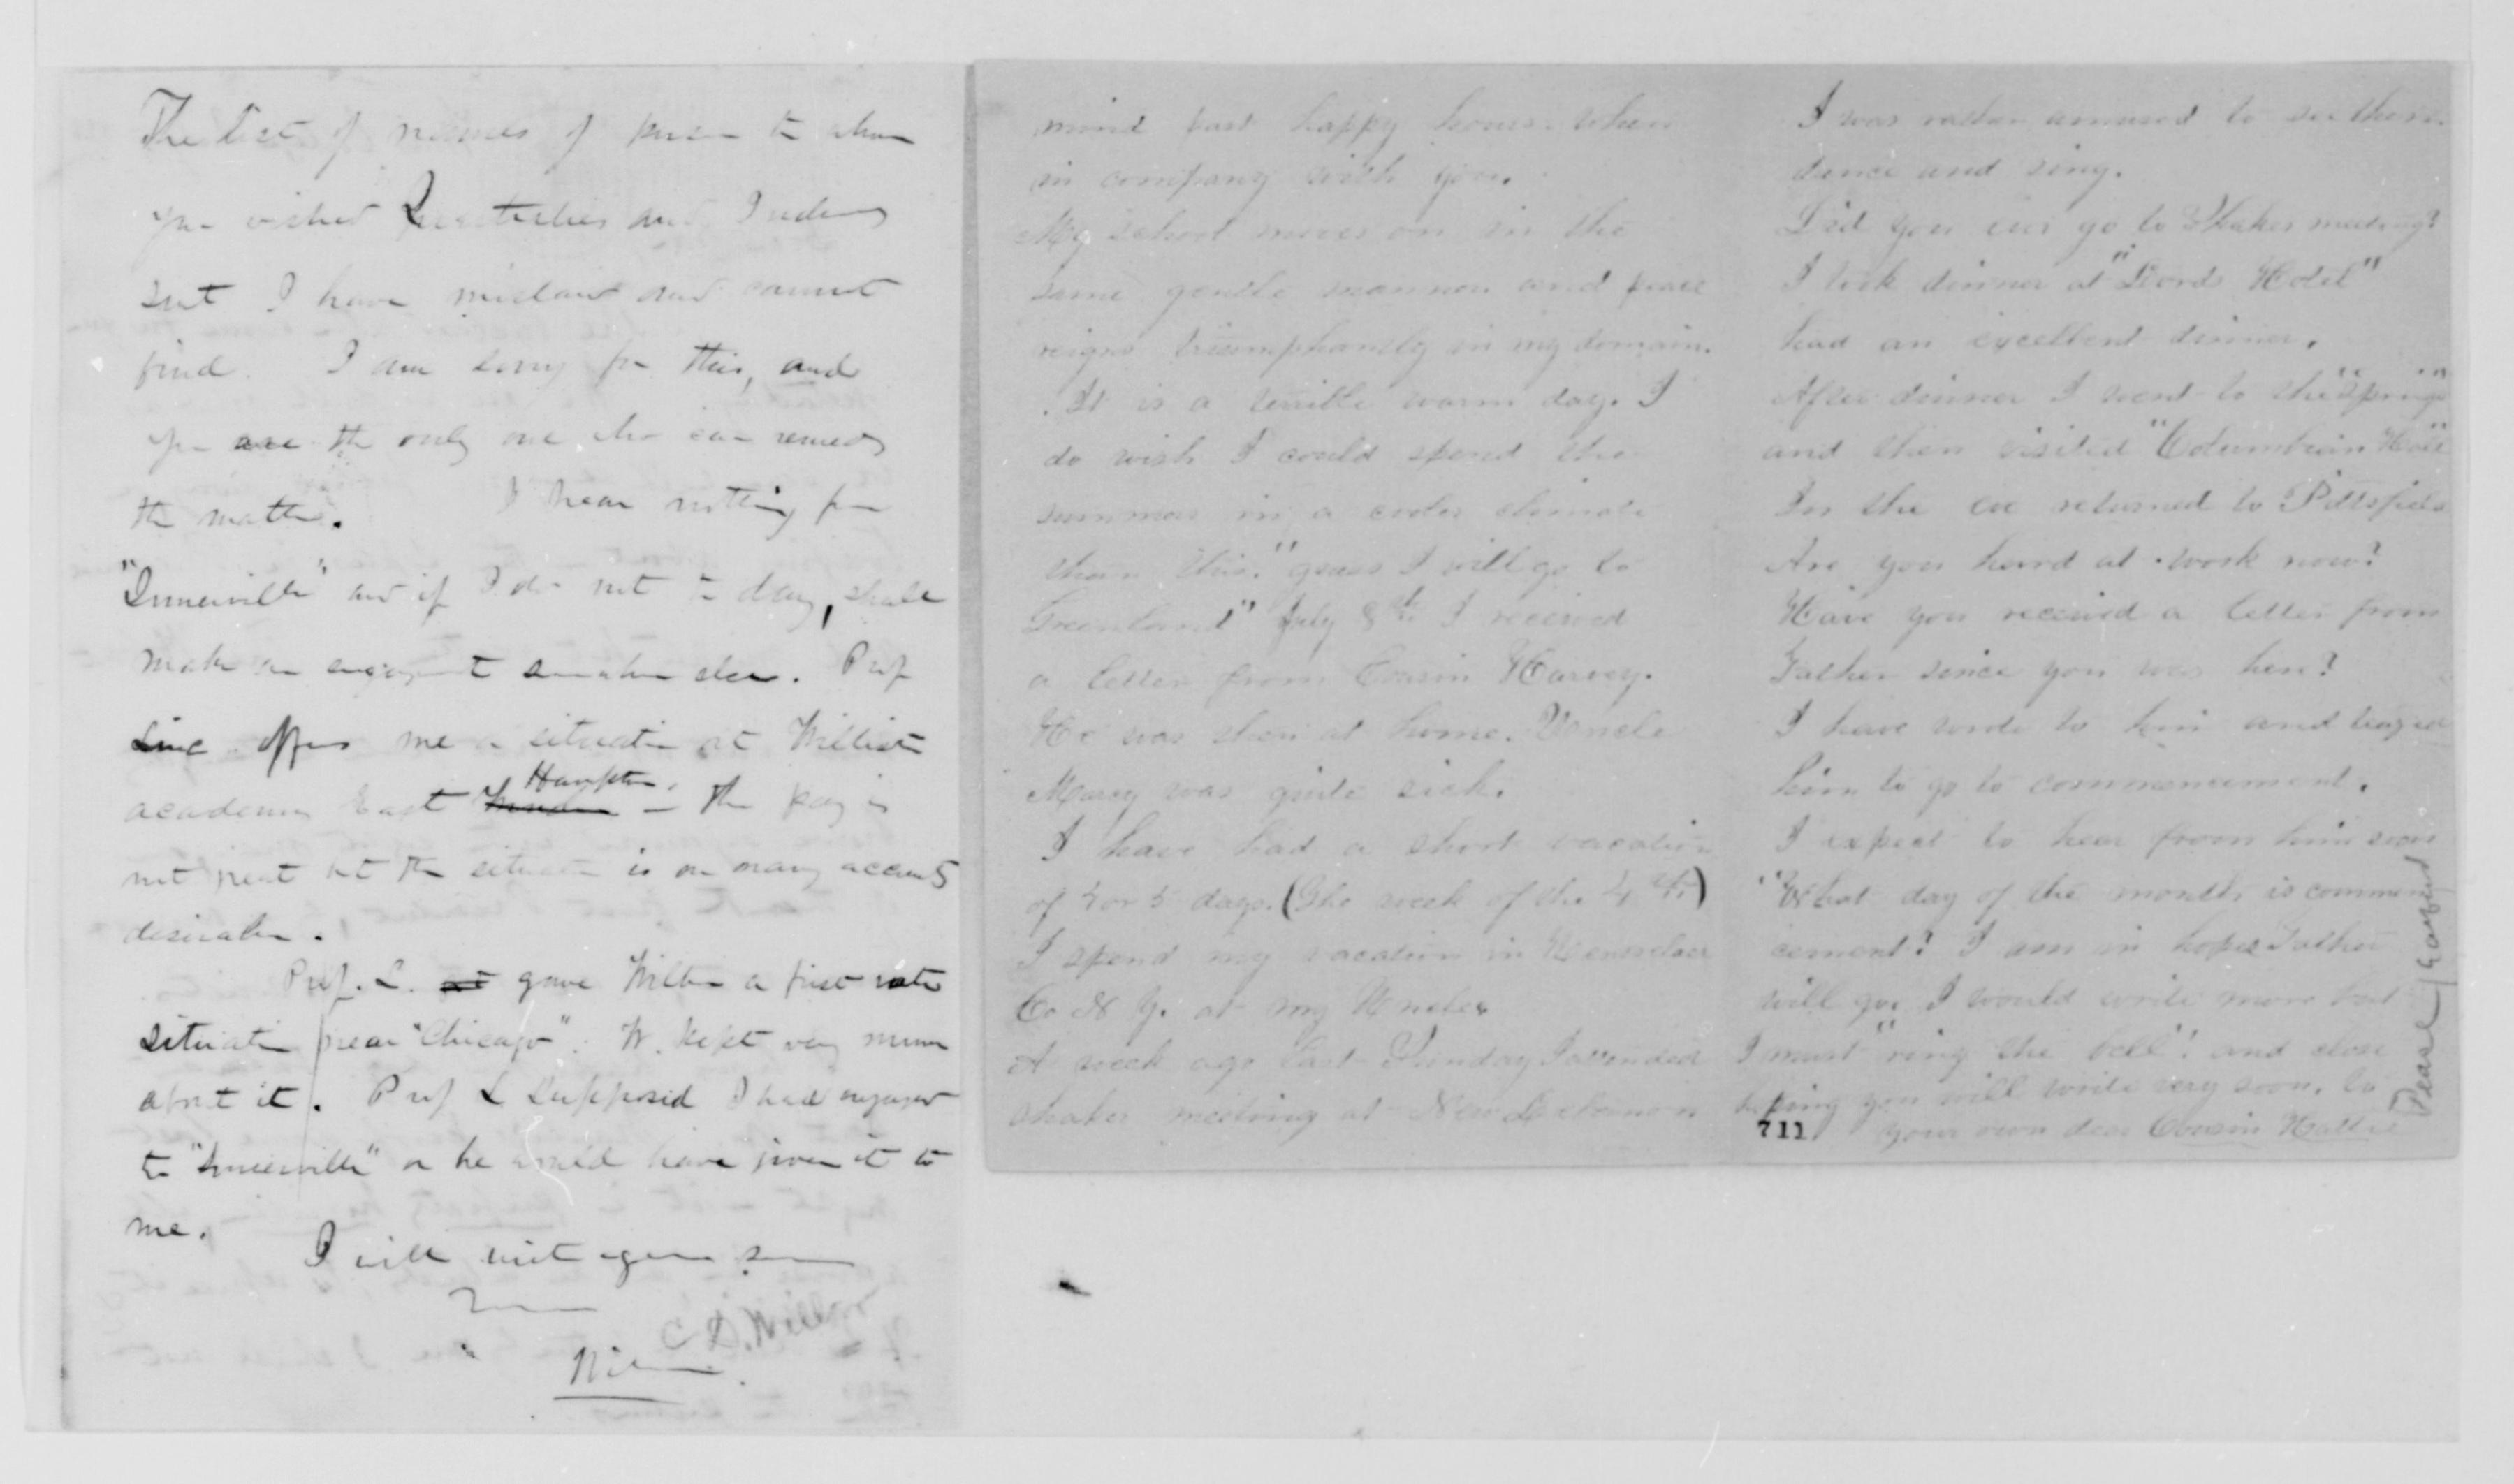 The list of names of person to whom
you wished Quarterlies and Index
sent I have mislaid and cannot
find. I am sorry for this, and
you are the only one who can remedy
the matter. I hear nothing from
" and if I do not to day, shall
make an engagement somewhere else. Prof
Linc offers me a situation at Williston
academy East Hampton. - The pay is
not great but the situation is on many accounts
desirable.
Prof. L. gave Wilber a first rate
situation near "Chicago". W. kept very mum
about it. Prof L supposed I had engaged
to " or he would have given it to
me.
I will write again soon
C. D. Wilber
mind past happy hours when
in company with you.
My school moves on in the
same gentle manner and peace
reigns triumphantly in my domain.
It is a terrible warm day. I
do wish I could spend the
summer in a cooler climate
than this. "guess I will go to
Greenland" July 8th I received
a letter from Cousin Harvey.
He was then at home. Uncle
Marcy was quite sick.
I have had a short vacation
of 4 or 5 days. (The week of the 4th)
I spend my vacation in Rensselaer
Co N Y. at my Uncles
A week ago last Sunday I attended
shaker meeting at New Lebanon
I was rather amused to see them
dance and sing.
Did you ever go to Shaker meeting?
I took dinner at "Hotel"
had an excellent dinner.
After dinner I went to the "Springs"
and then visited "Columbian Hall"
In the eve returned to Pittsfield
Are you heard at work now?
Have you received a letter from
Father since you was here?
I have wrote to him and
him to go to commencement.
I expect to hear from him soon
"What day of the month is commen
cement? I am in hopes Father
will go. I would write more but
I must "ring the bell"! and close
hoping you will write very soon. to
711 your own dear Cousin Hattie
Pearl / Garfield